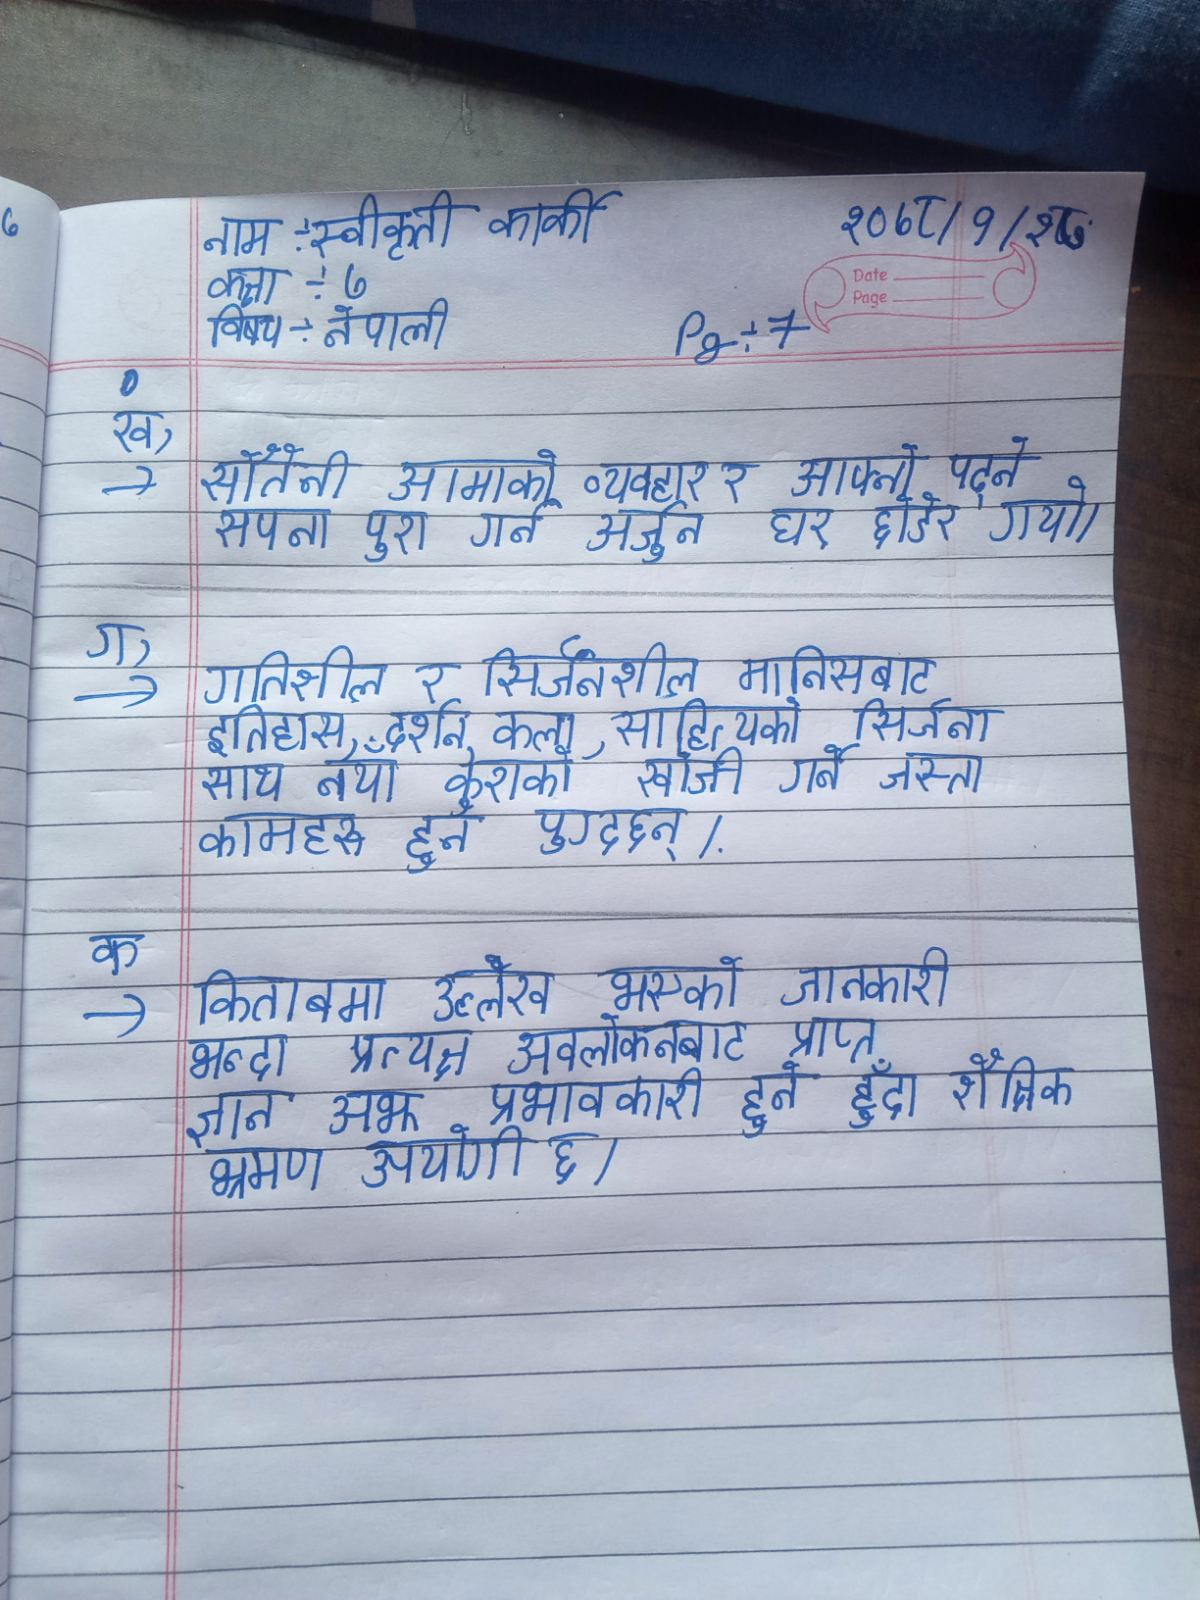 नाम ÷ स्वीकृती कार्की
२०७८/१/२८
कक्षा ÷ ७
Date
Page
विषय ÷ नेपाली
Pg ÷ 7
ख,
→ सौतेनी आमाको व्यवहार र आफ्नो पढ्ने
सपना पुरा गर्न अर्जुन घर छोडेर गयो।
ग,
→ गतिशील र सिर्जनशील मानिसबाट
इतिहास, दर्शन, कला, साहित्यको सिर्जना
साथ नयाँ कुराको खोजी गर्ने जस्ता
कामहरू हुन पुग्दछन्।
क
→ किताबमा उल्लेख भएको जानकारी
भन्दा प्रत्यक्ष अवलोकनबाट प्राप्त
ज्ञान अझ प्रभावकारी हुने हुँदा शैक्षिक
भ्रमण उपयोगी छ।